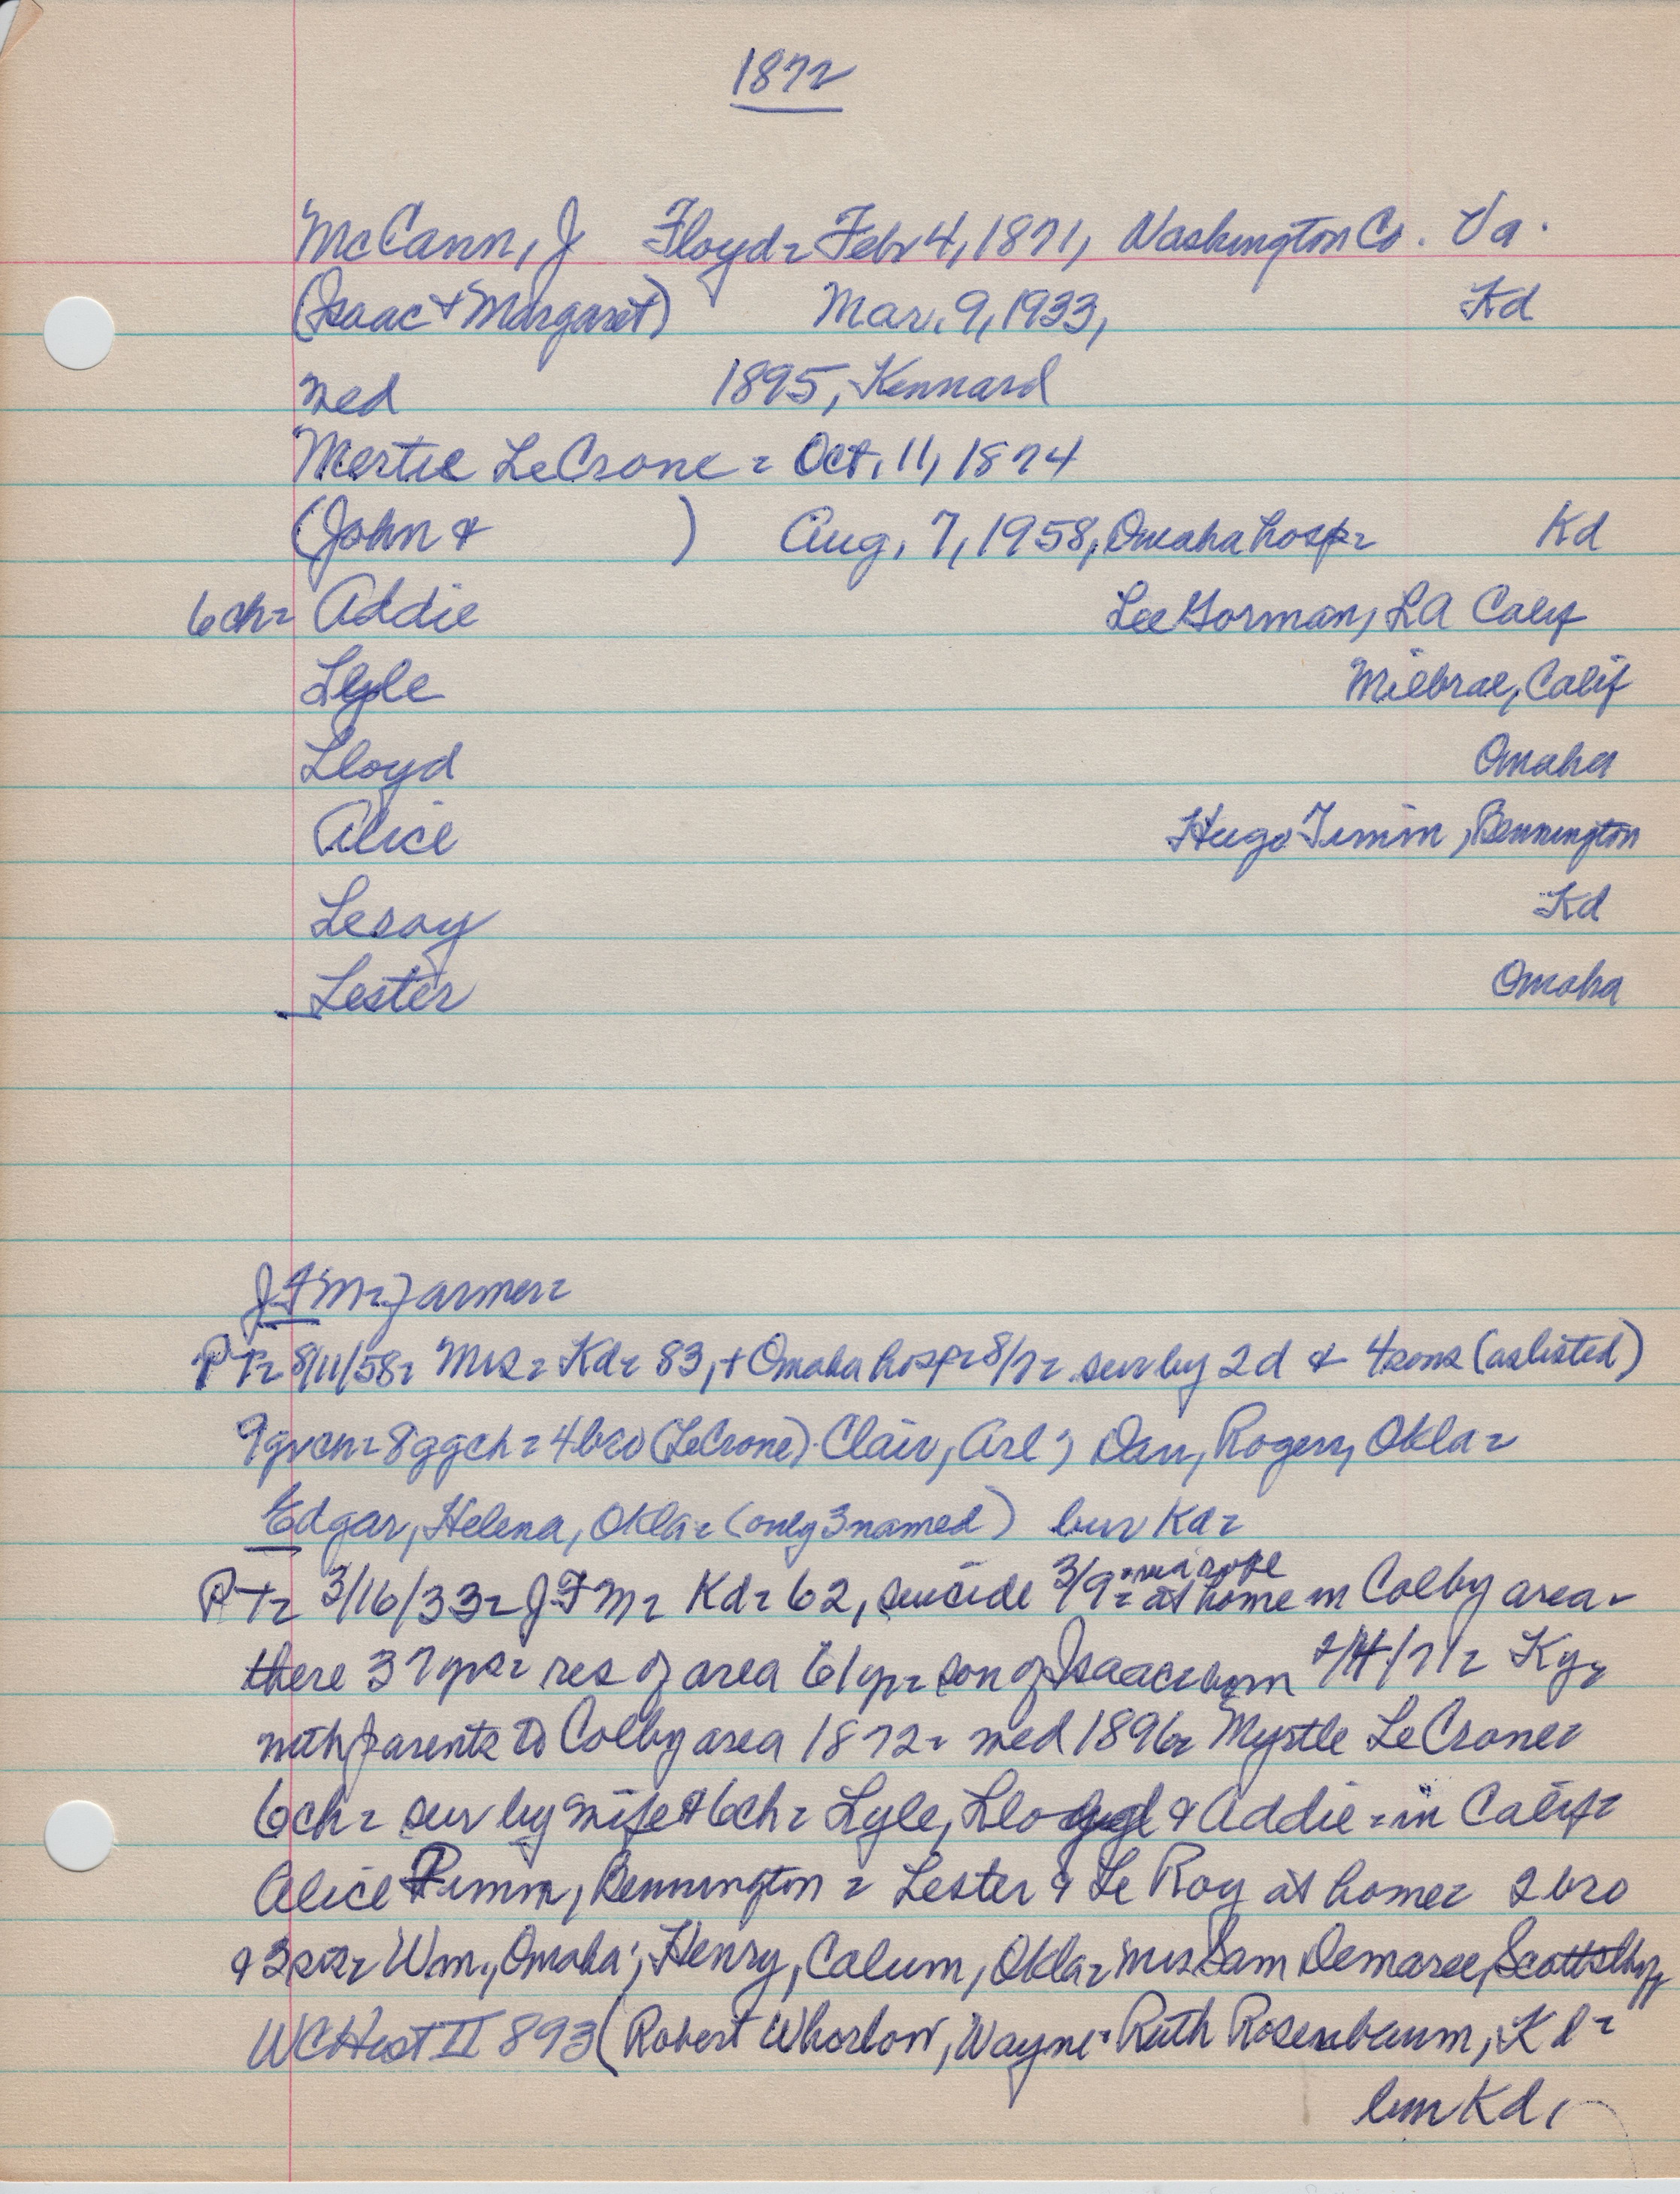 1872
McCann, J Floyd = Feb 4, 1871, Washington Co. Va.
(Isaac + Margaret) Mar. 9, 1933, Kd
med 1895, Kennard
Mertie LeCrone = Oct. 11, 1874
(John & ) Aug. 7, 1958, Omaha hosp = Kd
6 ch = Addie Lee Gorman, LA Calif
Lyle Milbrae, Calif
Lloyd Omaha
Alice Hugo Timm, Bennington
Leroy Kd
Lester Omaha
JFM = farmer =
PT = 8/11/58 = Mrs = Kd = 83, + Omaha hosp = 8/7 = sur by 2 d & 4 sons (as listed)
9 grch = 8 ggch = 4 bro (LeCrone) Clair, Arl; Dan, Rogers, Okla =
Edgar, Helena, Okla = (only 3 named) bur Kd =
PT = 3/16/33 = JFM = Kd = 62, suicide 3/9 = via rope at home in Colby area =
there 37 yrs = res of area 61 yr = son of Isaac = born 2/4/71 = Ky =
with parents to Colby area 1872 = med 1896 = Myrtle LeCrone =
6 ch = sur by wife & 6 ch = Lyle, Lloyd & Addie = in Calif =
Alice Timm, Bennington = Lester & Le Roy at home = 2 bro
& 2 sis = Wm., Omaha; Henry, Calum, Okla = Mrs Sam Demaree,
WCHist II 893 (Robert Whorlow, Wayne = Ruth Rosenbaum, Kd =
bur Kd,